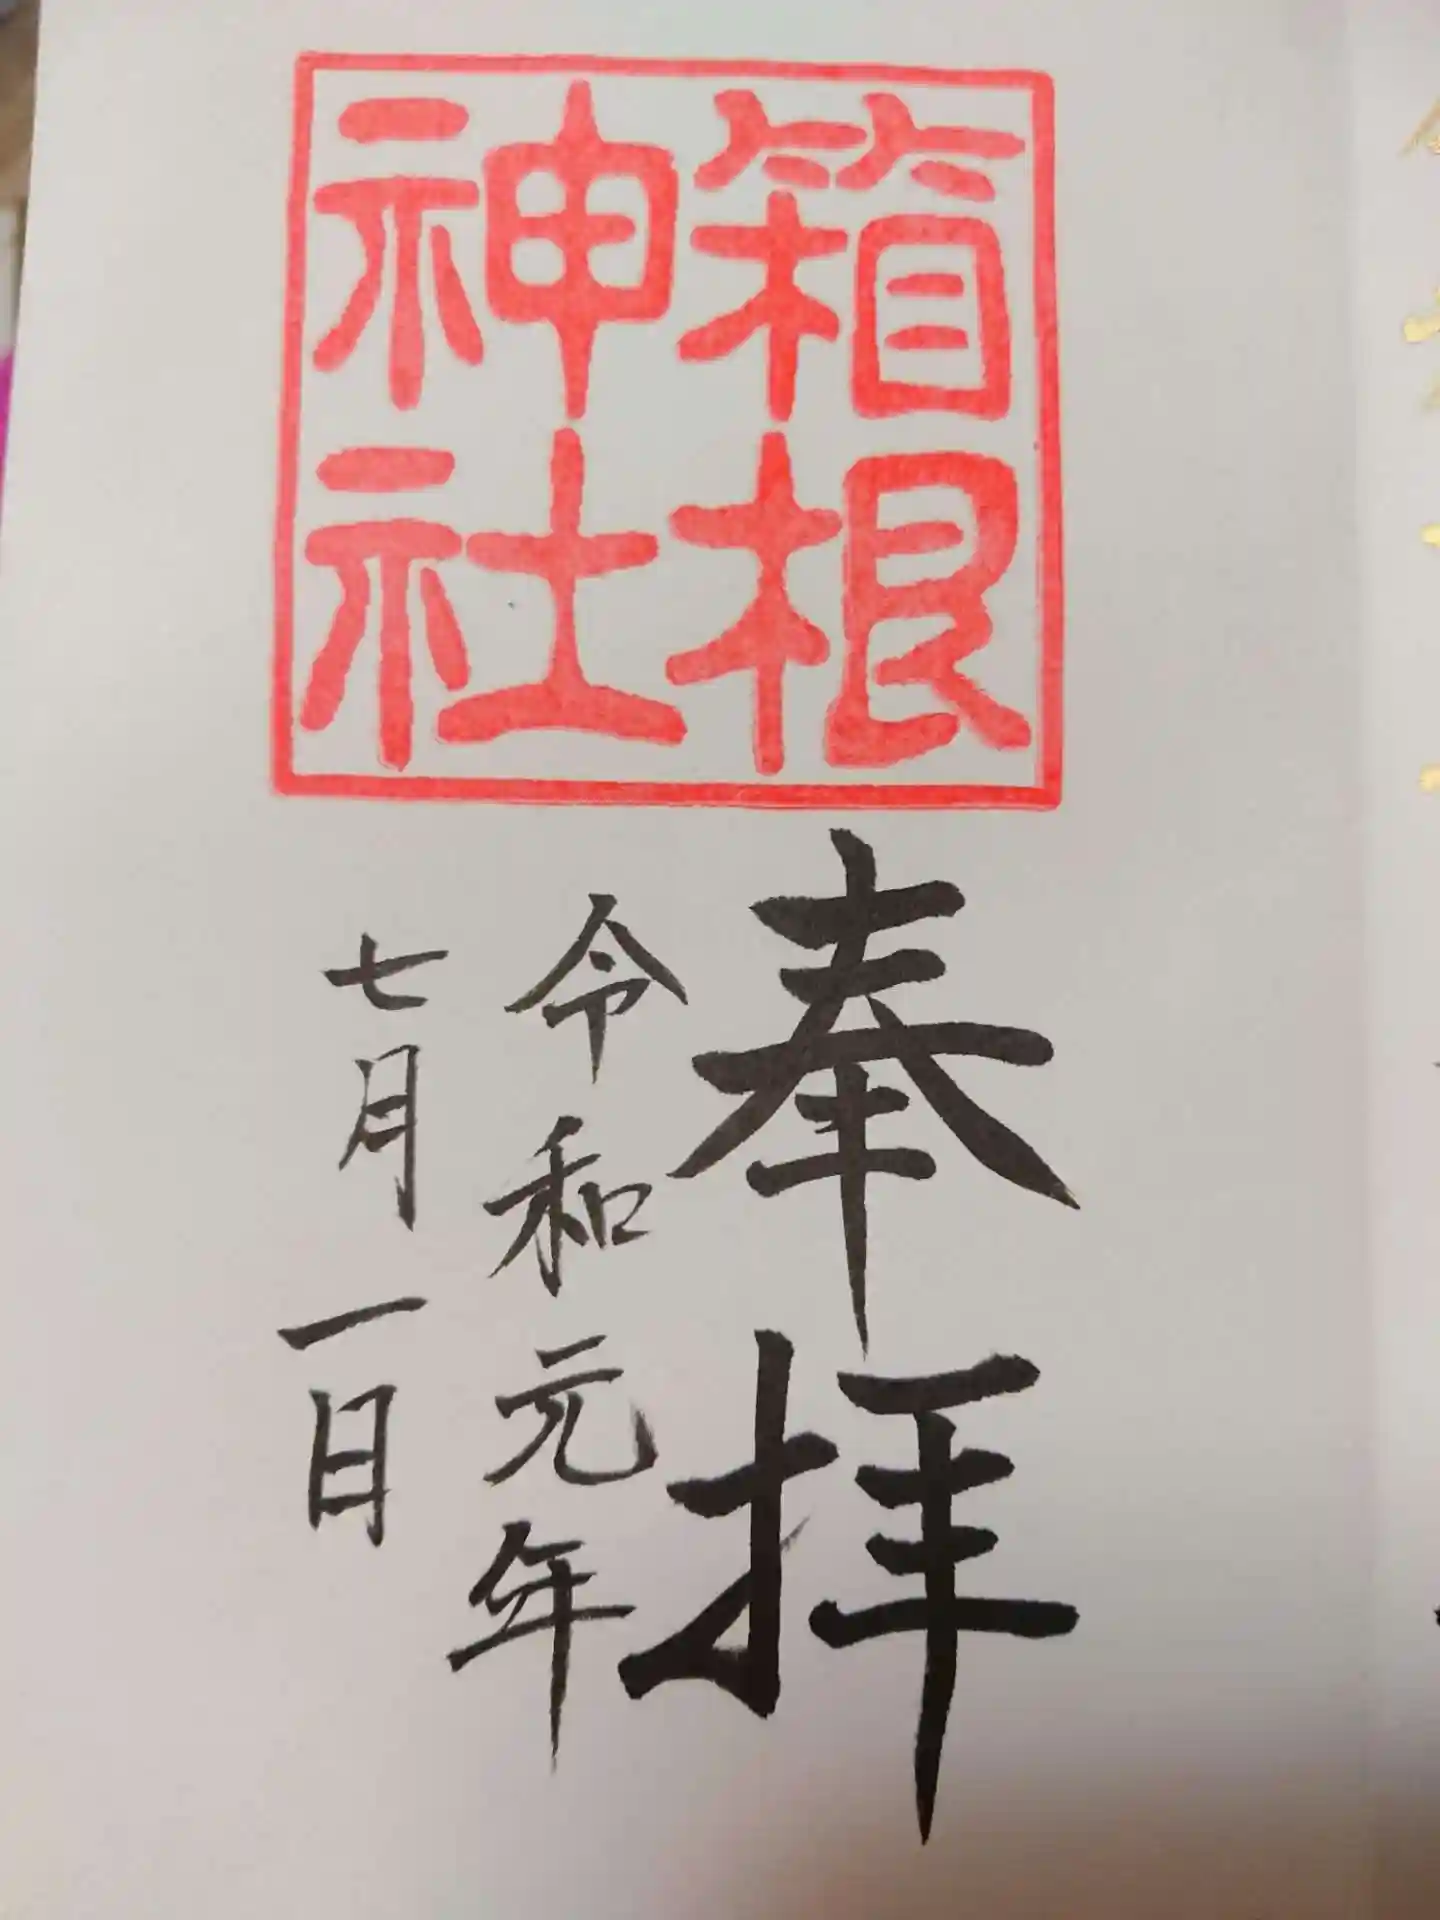 箱根
神社
奉拝
令和元年
七月一日